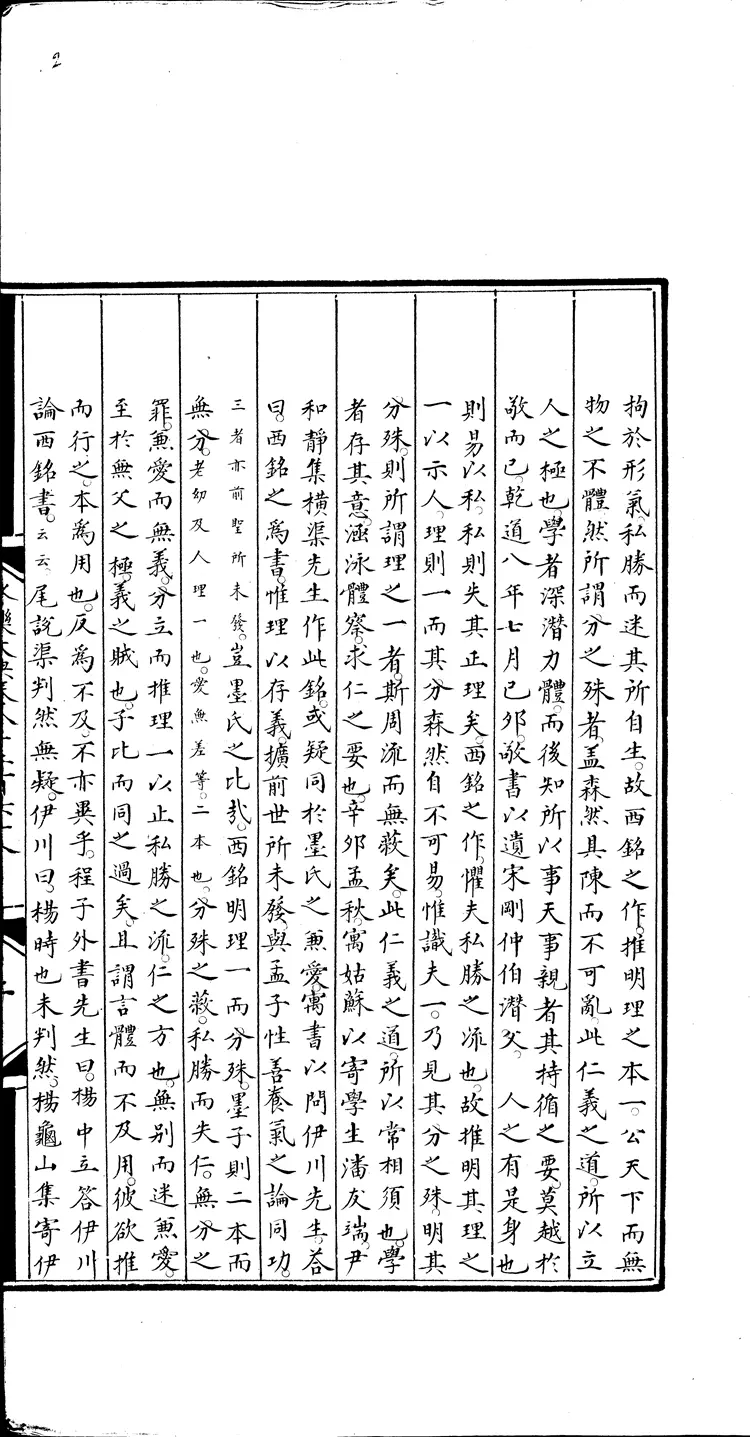 2
拘於形氣。私勝而迷其所自生。故西銘之作。推明理之本一。公天下而無
物之不體。然所謂分之殊者。盖森然具陳而不可亂。此仁義之道。所以立
人之極也。學者深潛力體。而後知所以事天事親者。其持循之要。莫越於
敬而已。乾道八年七月已夘。敬書以遺宋剛仲伯潛父。 人之有是身也
則易以私。私則失其正理矣。西銘之作。懼夫私勝之流也。故推明其理之
一以示人。理則一而其分森然自不可易。惟識夫一。乃見其分之殊。明其
分殊。則所謂理之一者。斯周流而無蔽矣。此仁義之道。所以常相須也。學
者存其意。涵泳體察。求仁之要也。辛夘孟秋。寓姑蘇以寄學生潘友端。尹
和靜集橫渠先生作此銘。或疑同於墨氏之兼愛。寓書以問伊川先生。荅
曰。西銘之爲書。惟理以存義。擴前世所未發。與孟子性善養氣之論同功。
三者亦前聖所未發。豈墨氏之比㦲。西銘明理一而分殊。墨子則二本而
無分。老幼及人理一也。愛無差等。二本也。分殊之蔽。私勝而失仁。無分之
罪。兼愛而無義。分立而推理一以止私勝之流。仁之方也。無别而迷兼愛。
至於無父之極。義之賊也。子比而同之過矣。且謂言體而不及用。彼欲推
而行之。本爲用也。反爲不及。不亦異乎。程子外書先生曰。楊中立答伊川
論西銘書。云云。尾說渠判然無疑。伊川曰。楊時也未判然。楊龜山集寄伊